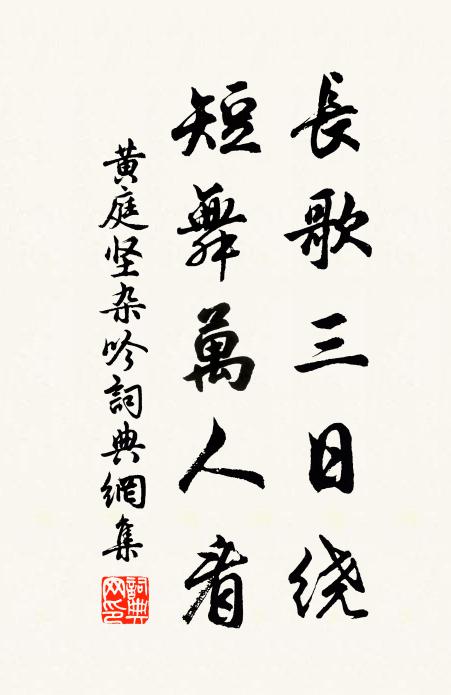 長歌三日绕
短舞萬人看
黄庭坚杂吟詞典網集
詞典
网印